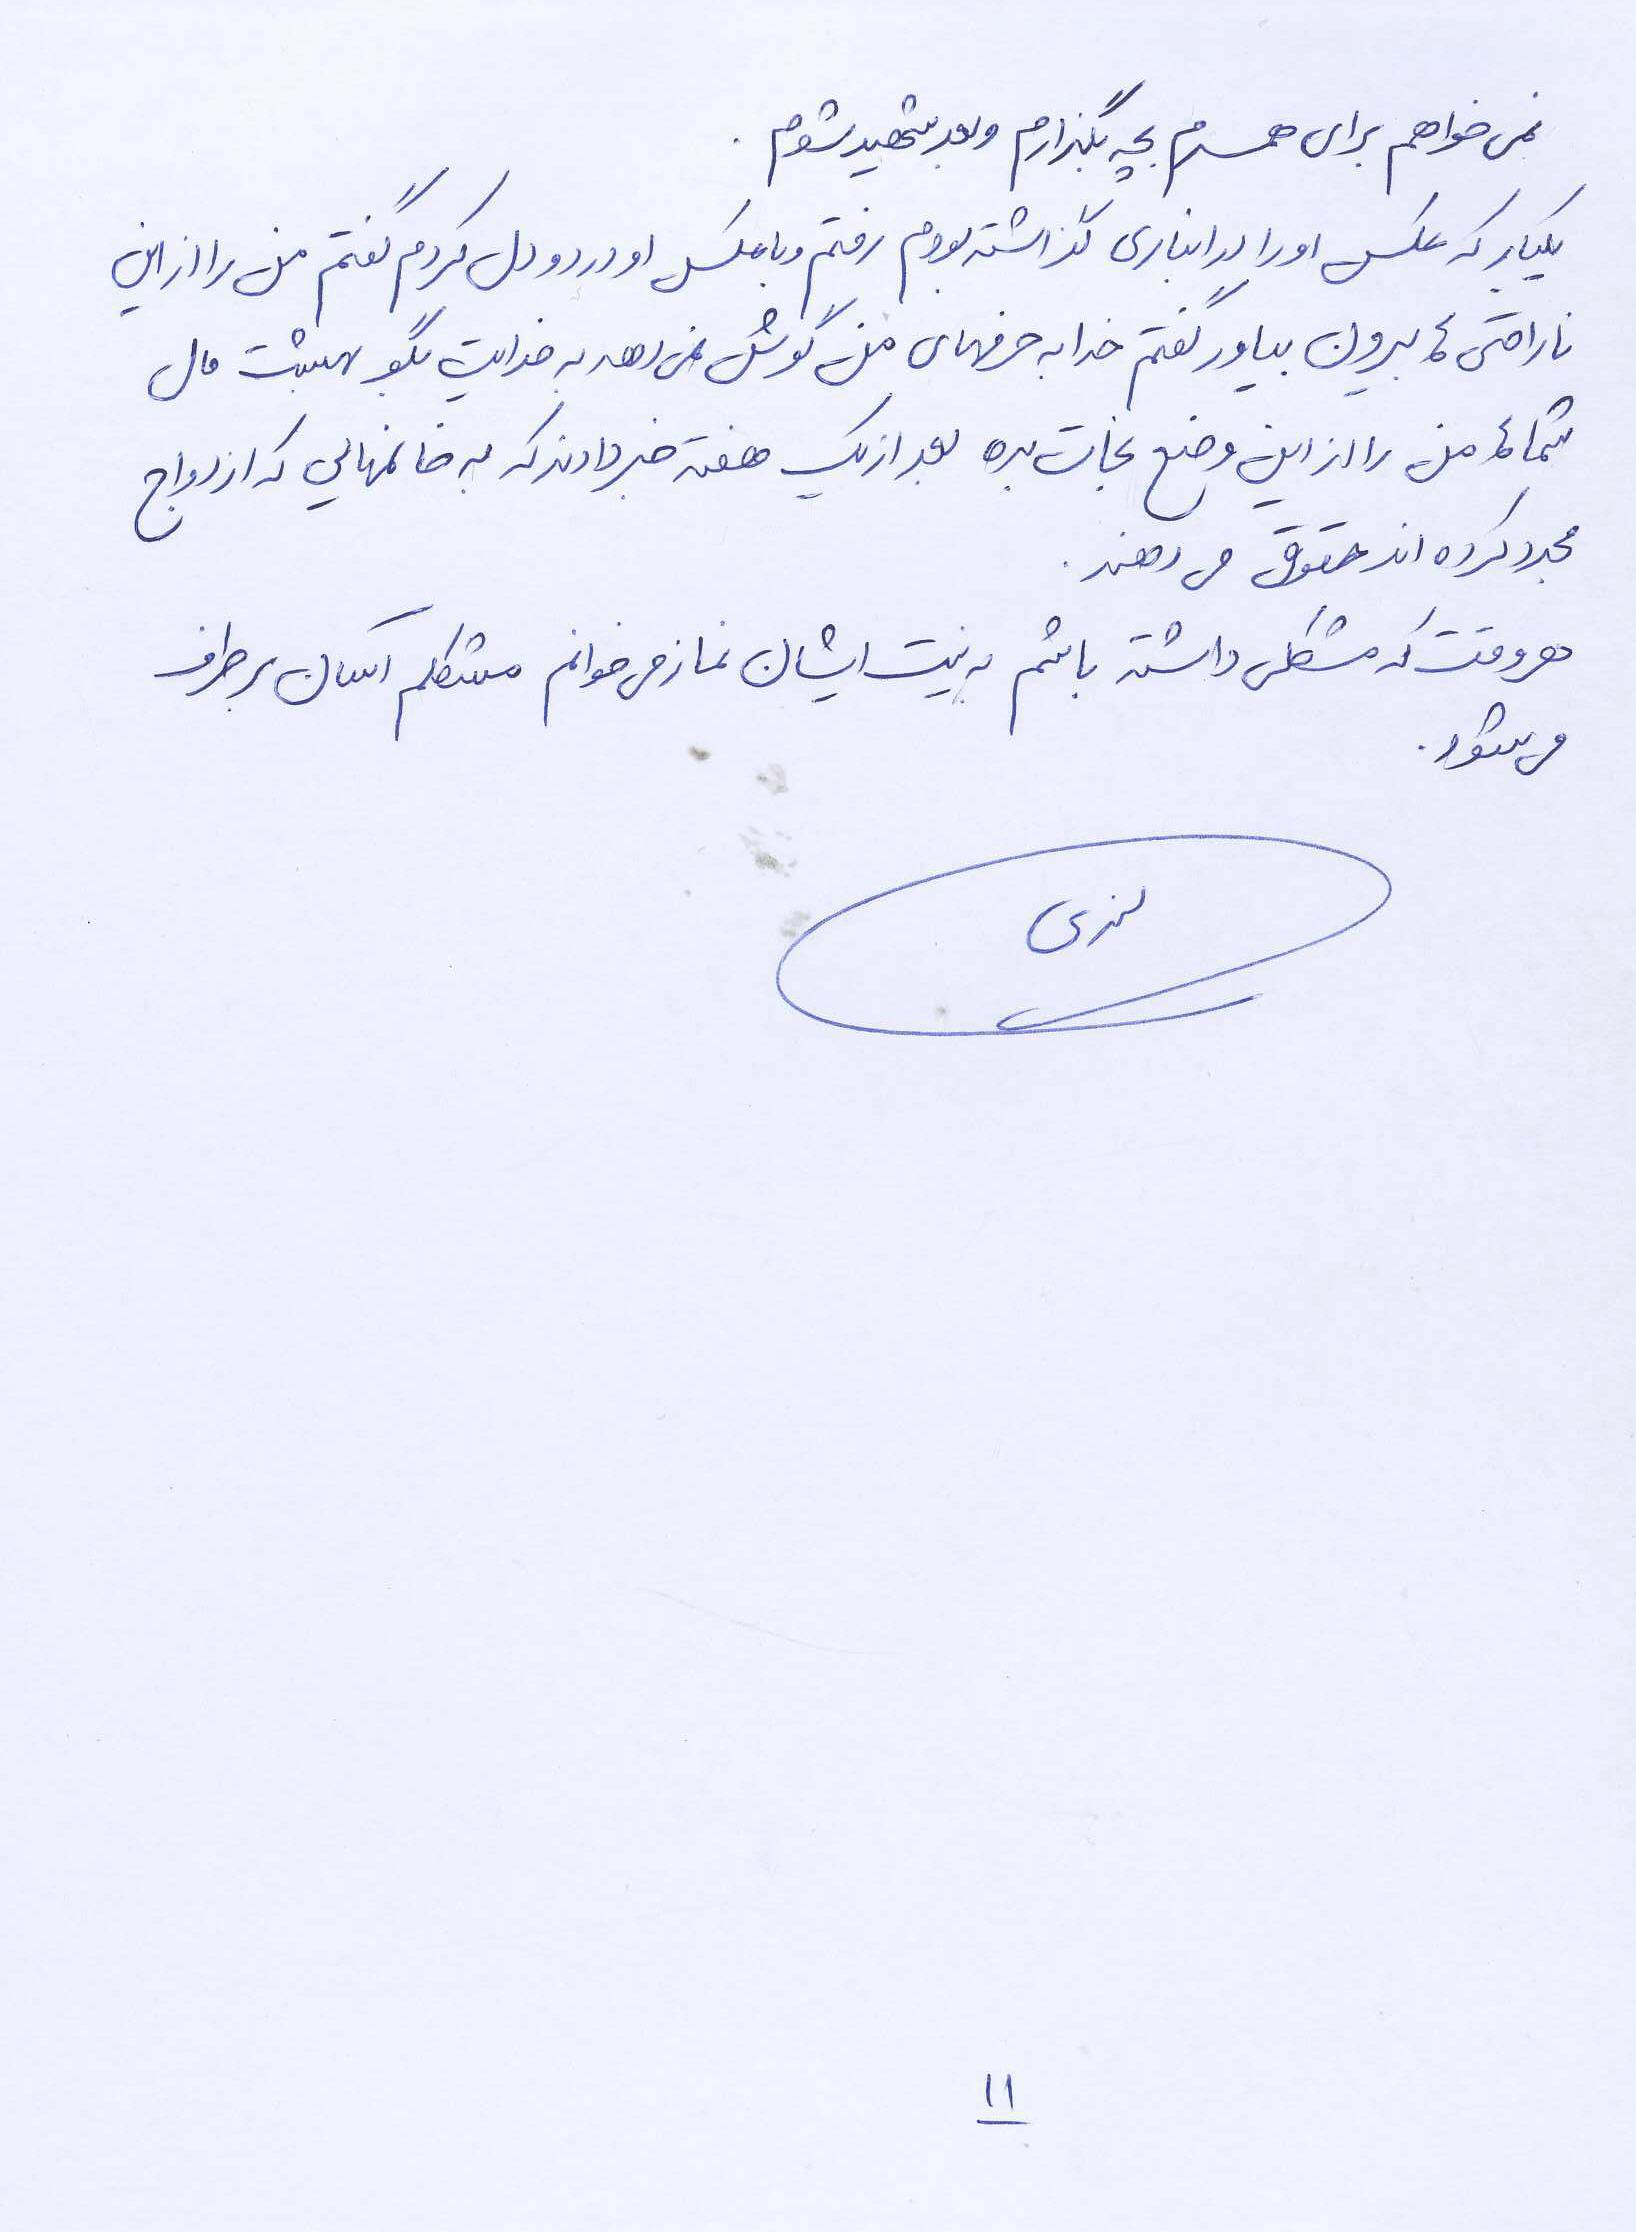 نمی خواهم برای همسرم بچه بگذارم و بعد شهید شوم .
یکبار که عکس او را در انباری گذاشته بودم رفتم و با عکس او درد و دل کردم گفتم من را از این
ناراحتی ها بیرون بیاور گفتم خدا به حرفهای من گوش نمی دهد به خدایت بگو بهشت مال
شما ها من را از این وضع نجات بده بعد از یک هفته خبر دادند که به خانمهایی که ازدواج
مجدد کرده اند حقوق می دهند .
هر وقت که مشکلی داشته باشم به نیت ایشان نماز می خوانم مشکلم آسان برطرف
می شود .
۱۱